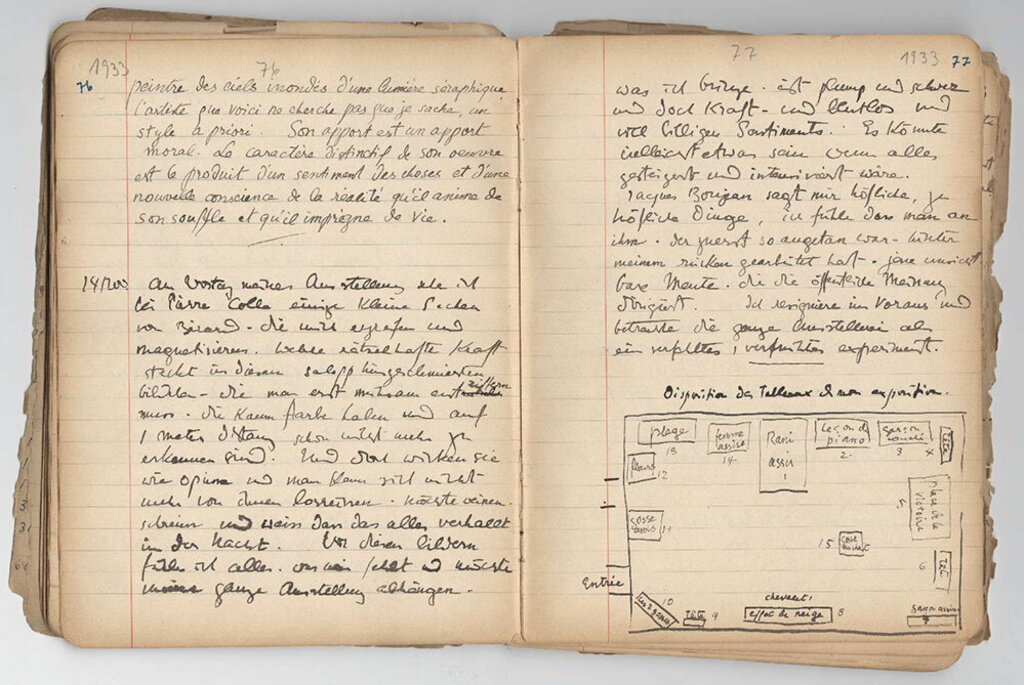 1933
76
76
peintre des ciels inondés d'une lumière séraphique
l'artiste que voici ne cherche pas que je sache, un
style a priori. Son apport est un apport
moral. Le caractère distinctif de son oeuvre
est le produit d'un sentiment des choses et d'une
nouvelle conscience de la réalité qu'il anime de
son souffle et qu'il imprègne de vie.
Am Vortag meiner Ausstellung sehe ich
bei Pierre Colle einige kleine Sachen
von Bérard - die mich ergreifen und
magnetisieren. Welche rätselhafte Kraft
steckt in diesen salopp hingeschmierten
Bildern - die man erst mühsam entziffern
muss. die kaum Farbe haben und auf
1 meter Distanz schon nicht mehr zu
erkennen sind. Und doch wirken sie
wie Opium und man kann sich nicht
mehr von ihnen losreissen. möchte weinen.
schreien und weiss dass das alles verhallt
in der Nacht. Vor diesen Bildern
fühle ich alles. was mir fehlt und möchte
meine ganze Ausstellung abhängen.
77
1933 77
was ich bringe. ist plump und schwer
und doch Kraft- und blutlos und
voll billigen Sentiments. Es könnte
vielleicht etwas sein wenn alles
gesteigert und intensiviert wäre.
Jacques sagt mir höfliche, zu
höfliche Dinge, ich fühle dass man an
ihm. der zuerst so angetan war - hinter
meinem rücken gearbeitet hat. jene unsicht-
bare Meute. die die öffentliche Meinung
dirigiert. Ich resigniere im Voraus und
betrachte die ganze Ausstellerei als
ein verfehltes, verfrühtes experiment.
Disposition des Tableaux de mon exposition.
plage 13
femme assise 14
assis 1
Leçon de piano 2
garçon 3
tête 4
fleurs 12
place de la victoire 5
gosse 11
15
tête 6
Entrée
10
tête 9
chevalet:
effet de neige 8